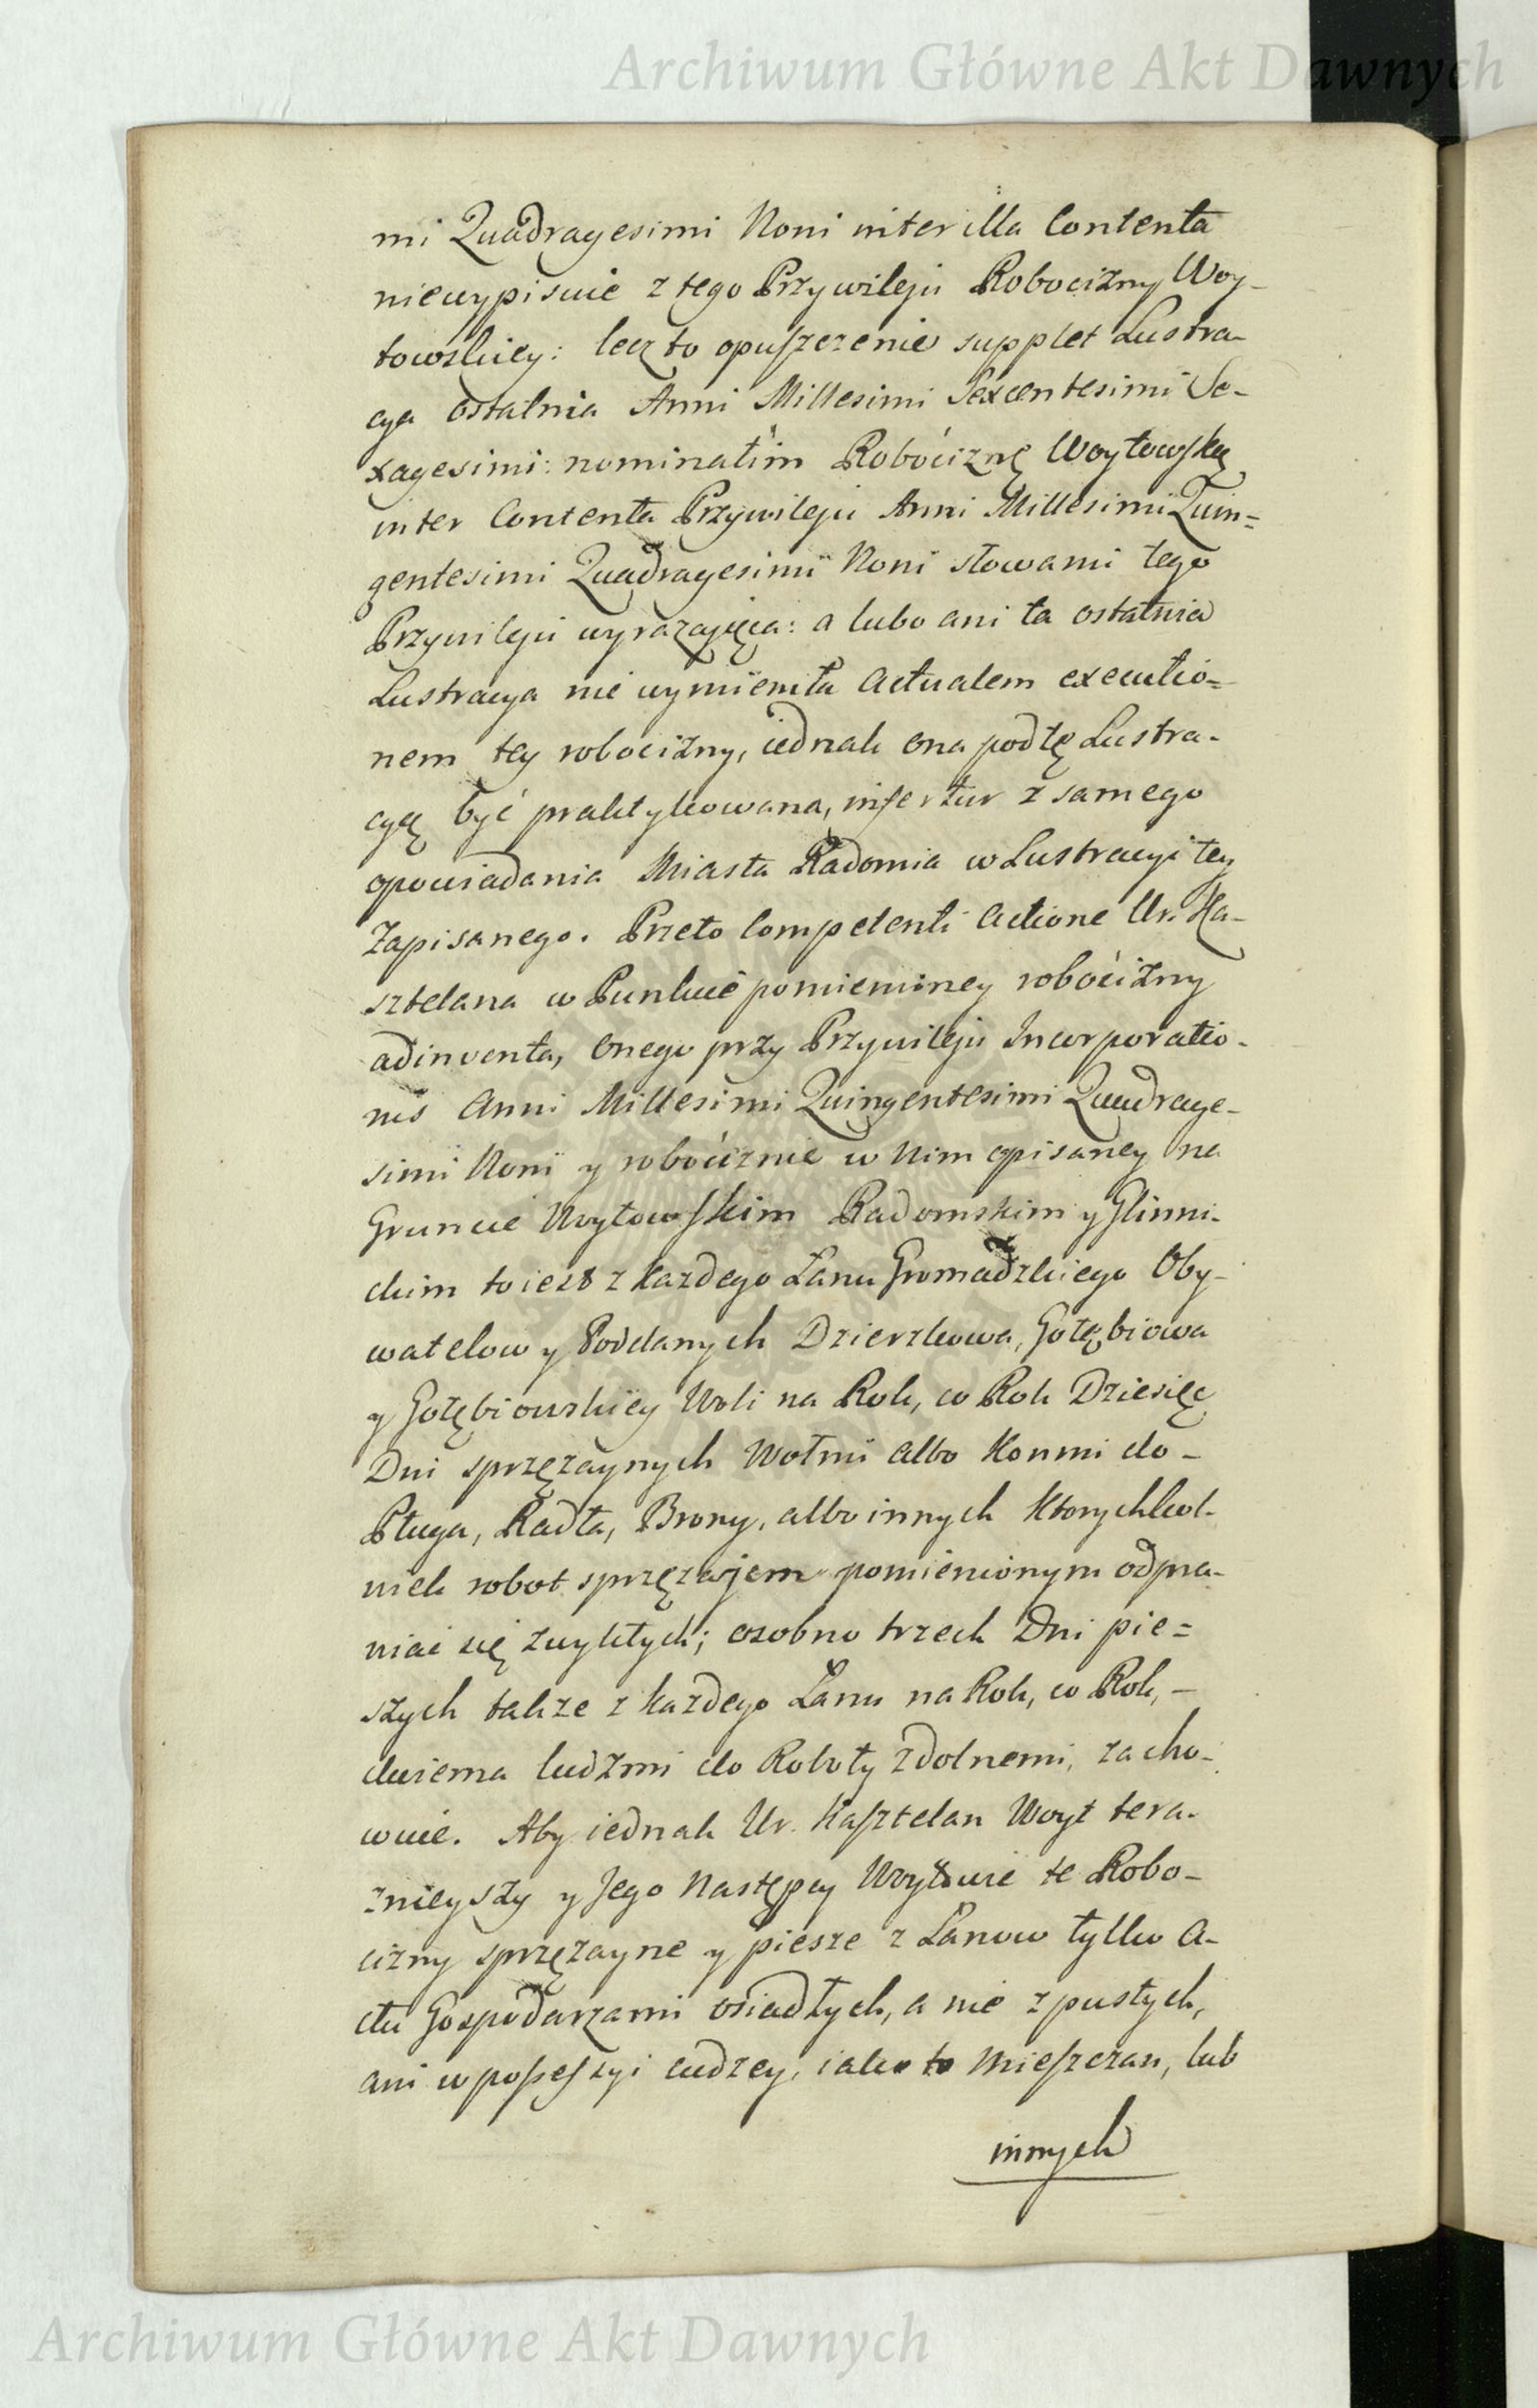 Archiwum Główne Akt Dawnych
mi Quadragesimi Noni inter illa Contenta
niewypisuie z tego Przywileju Robocizny Woy-
towskiey: lecz to opuszczenie supplet Lustra-
cya ostatnia Anni Millesimi Sexcentesimi Se-
xagesimi: nominatim Robociznę Woytowską
inter Contenta Przywileju Anni Millesimi Quin=
gentesimi Quadragesimi Noni słowami tego
Przywileju wyrażaiąca: a lubo ani ta ostatnia
Lustracya nie wymieniła actualem executio=
nem tey robocizny, iednak ona pod tę Lustra-
cyą być praktykowana, infertur z samego
opowiadania Miasta Radomia w Lustracyi tey
Zapisanego. Przeto Competenti actione Ur. Ka-
sztelana w Punkcie pomienioney robocizny
adinventa, Onego przy Przywileju Incorporatio-
nis Anni Millesimi Quingentesimi Quadrage-
simi Noni y robociznie w Nim opisaney na
Gruncie Woytowskim Radomskim y Glinni-
ckim to iest z każdego Łanu Gromadzkiego Oby-
watelow y Poddanych Dzierzkowa, Gołębiowa
y Gołębiowskiey Woli na Rok, co Rok Dziesięc
Dni sprzężaynych Wołmi albo Konmi do-
Pługa, Radła, Brony, albo innych Ktorychkol-
wiek robot sprzężajem pomienionym odpra-
wiać się zwykłych; osobno trzech Dni pie=
szych także z każdego Łanu na Rok, co Rok,-
dwiema ludzmi do Roboty zdolnemi, zacho-
wuie. Aby iednak Ur. Kasztelan Woyt tera-
znieyszy y Jego Następcy Woytowie te Robo-
cizny sprzężayne y piesze z Łanow tylko a-
ctu Gospodarzami osiadłych, a nie z pustych,
ani w possessyi cudzey, iako to Mieszczan, lub
innych
Archiwum Główne Akt Dawnych